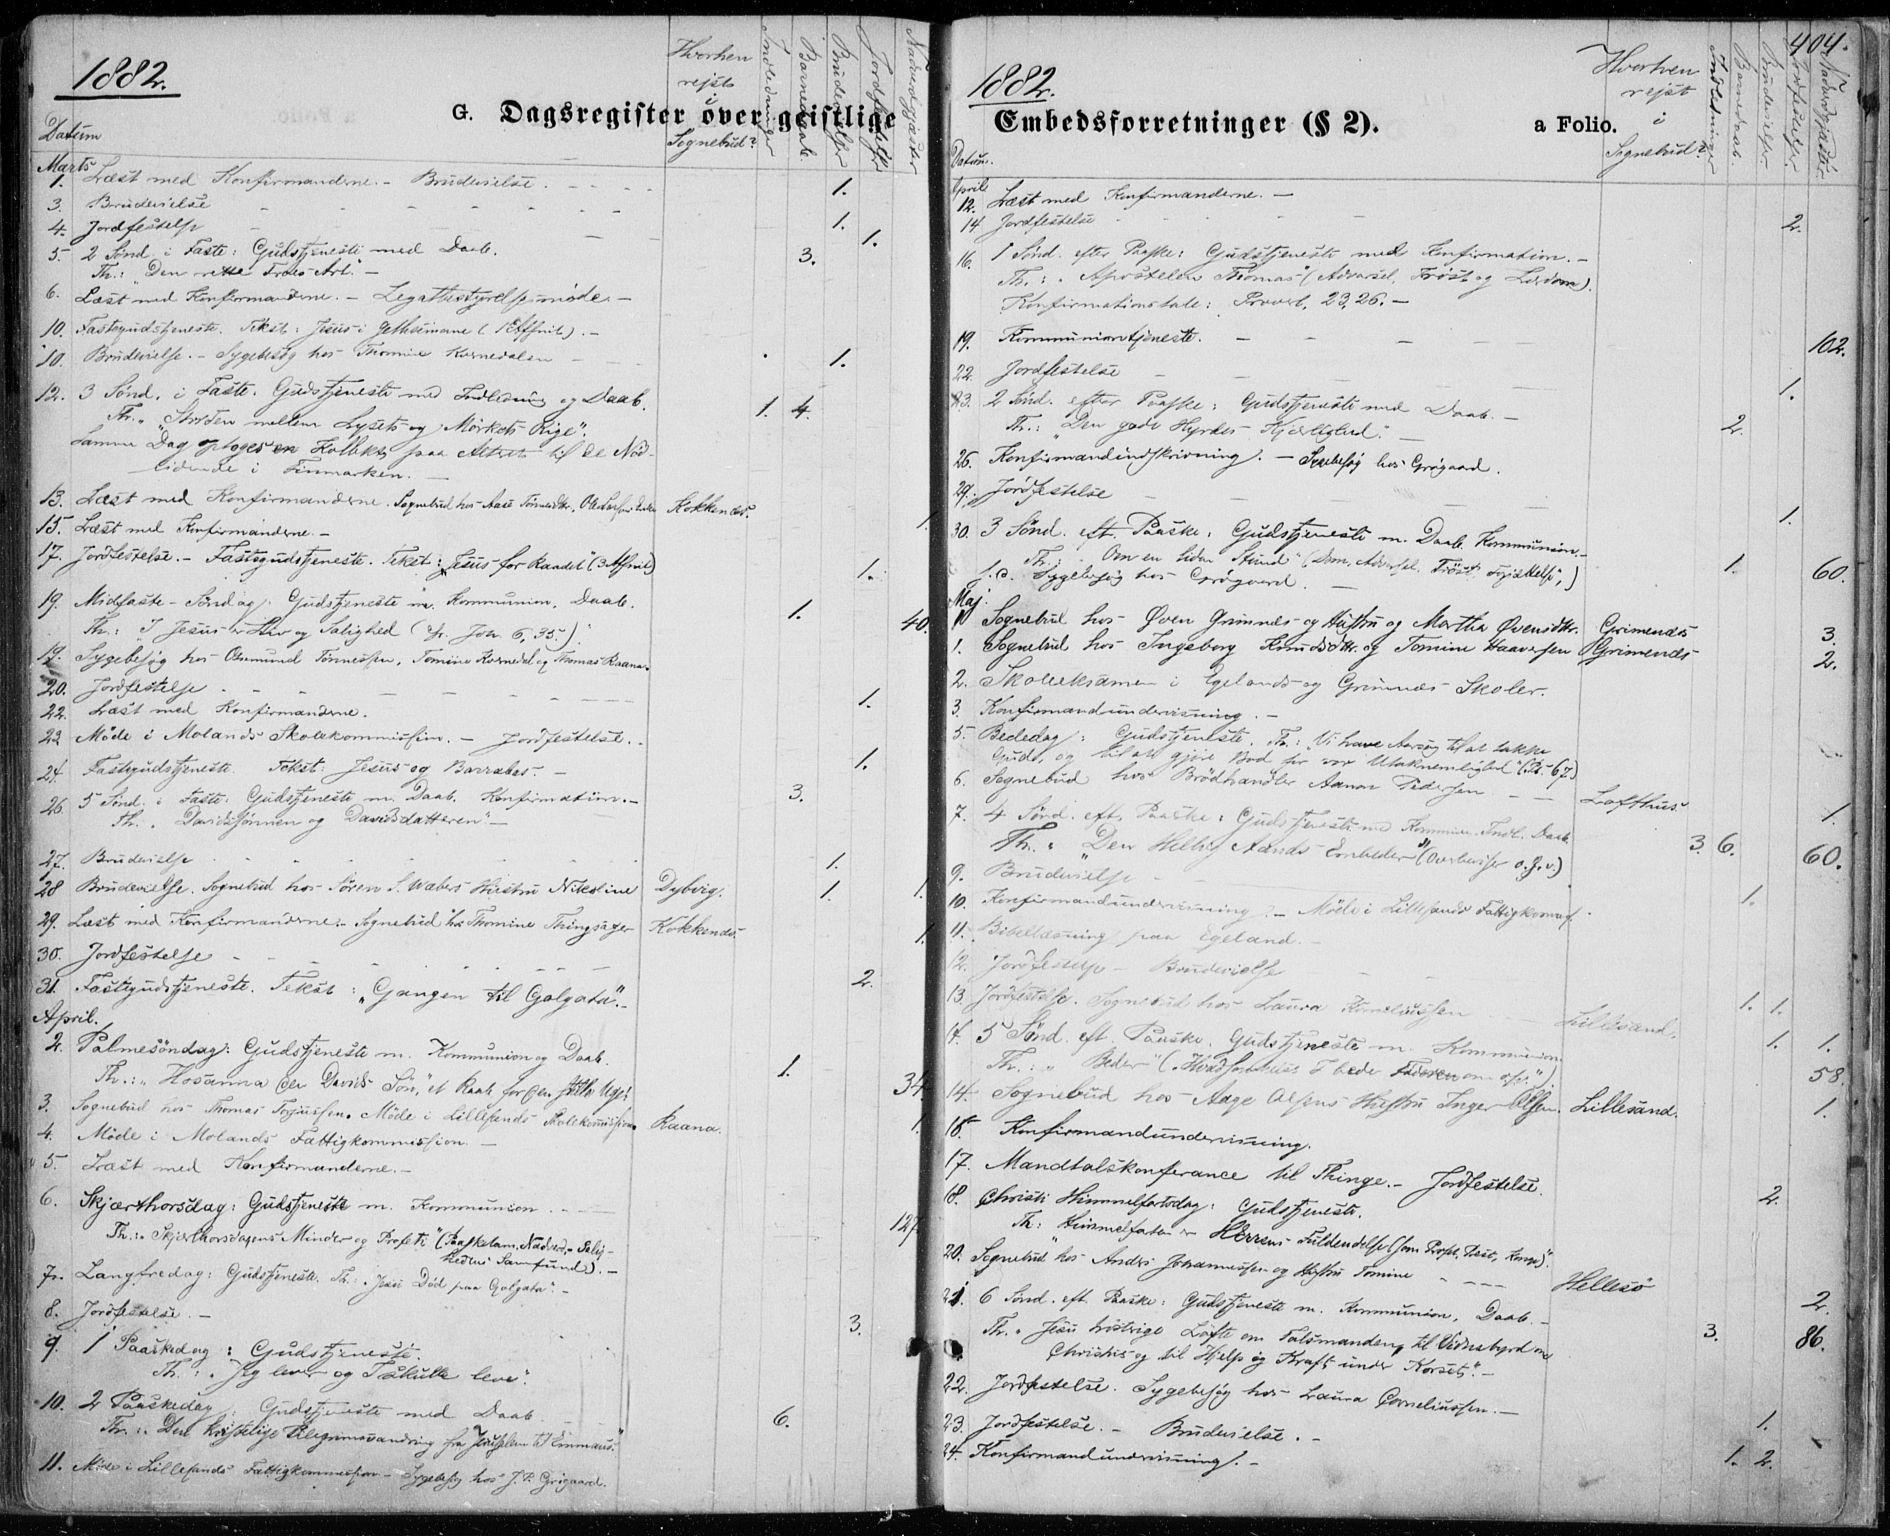 1882.
G. Dagsregister over geistlige
Datum
Hvorhen
rejst
i
Sognebud?
Indledninger
Barnedaab.
Brudevielser
Jordfæstelser
Nadvergjæster
Marts
1. Læst med Konfirmanderne. - Brudevielse. 1.
3. Brudevielse 1.
4. Jordfestelse 1.
5. 2 Sönd. i Faste: Gudstjeneste med Daab. 3.
Th.: "Den rette Troes Art." -
6. Læst med Konfirmanderne. - Legathestyrelsesmöde. -
10. Fastegudstjeneste. Tekst: Jesus i Gethsemane (1 Afsnit). -
10. Brudevielse. - Sygebesög hos Thomine Kornedalen 1.
12. 3 Sönd. i Faste. Gudstjeneste med Indledning og Daab. 1. 4.
Th. "Striden mellem Lysets og Mörkets Rige".
Samme Dag optoges en Kollekt paa Altret til de Nöd-
lidende i Finmarken. -
13. Læst med Konfirmanderne. Sognebud hos Aase Tönnesdtr. Kokkenes. 1.
15. Læst med Konfirmanderne. -
17. Jordfestelse. - Fastegudstjeneste. Tekst: "Jesus for Raadet" (3 Afsnit) 1.
19. Midfaste-Söndag: Gudstjeneste m. Kommunion, Daab. 1. 40.
Th.: I Jesus er Liv og Salighed (fr. Joh. 6, 35.)
19. Sygebesög hos Osmund Tönnessen, Tomine Kornedal og Thomas Raana.
20. Jordfestelse 1.
22. Læst med Konfirmanderne.
23 Möde i Molands Skolekommission. - Jordfestelse. 1.
24. Fastegudstjeneste. Tekst: Jesus og Barrabas. -
26. 5 Sönd. i Faste: Gudstjeneste m. Daab. Konfirmation. - 3.
Th. "Davidssönnen og Davidsdatteren" -
27. Brudevielse 1.
28 Brudevielse. Sognebud hos Sören S. Wabers Hustru Nikoline Dybvig. 1. 1.
29. Læst med Konfirmanderne. - Sognebud hos Thomine Thingsager Kokkenes. 1.
30. Jordfestelse 2.
31. Fastegudstjeneste. Tekst: "Gangen til Golgata". -
April.
2. Palmesöndag: Gudstjeneste m. Kommunion og Daab. 1. 34
Th.: "Hosanna Davids Sön," et Raab for den stille Uge!
3. Sognebud hos Thomas Torjussen. Möde i Lillesands Skolekommission Raana. 1.
4. Möde i Molands Fattigkommission. -
5. Læst med Konfirmanderne. -
6. Skjærthorsdag: Gudstjeneste m. Kommunion 127.
Th.: "Skjærthorsdagens Minder og Profeti" (Paaskelam, Nadver, Salig-
hedens Samfund). -
7. Langfredag: Gudstjeneste. Th.: "Jesu Död paa Golgata". -
8. Jordfestelse. - 3.
9. 1 Paaskedag: Gudstjeneste.
Th.: "Jeg lever og I skulle leve".
10. 2 Paaskedag: Gudstjeneste med Daab 6.
Th.: "Den kristelige Pilegrimsvandring fra Jerusalem til Emmaus"
11. Möde i Lillesands Fattigkommission - Sygebesög hos J. P. Grögaard.
1882.
404.
Embedsforretninger (§ 2).
a Folio.
Datum.
Hvorhen
rejst
i
Sognebud?
Indledninger
Barnedaab.
Brudevielser
Jordfæstelser
Nadvergjæster
April
12. Læst med Konfirmanderne. -
14 Jordfestelse 2.
16. 1 Sönd. efter Paaske: Gudstjeneste med Konfirmation. -
Th.: "Apostelen Thomas" (Advarsel, Tröst og Lærdom).
Konfirmationstale: Proverb. 23, 26. -
19. Kommuniontjeneste. 102.
22. Jordfestelse 1.
23. 2 Sönd. efter Paaske: Gudstjeneste med Daab. - 2.
Th.: "Den gode Hyrdes Kjærlighed." -
26. Konfirmandindskrivning. - Sygebesög hos Grögaard.
29. Jordfestelse 1.
30. 3 Sönd. eft. Paaske: Gudstjeneste m. Daab. Kommunion - 1. 60.
Th.: "Om en liden Stund" (Dom, Advarsel, Tröst)
s. d. Sygebesög hos Grögaard. -
Maj.
1 Sognebud hos Öven Grimnes og Hustru og Martha Övensdtr. Grimenes 3.
1. Sognebud hos Ingeborg Knudsdtr. og Tomine Haaversen Grimenes 2.
2. Skoleeksamen i Egelands og Grimnes Skoler.
3. Konfirmandundervisning. -
5. Bededag: Gudstjeneste. Th.: "Vi have Aarsag til at takke
Gud, og til at gjöre Bod for vor Utaknemlighed" (Ps. 67)
6. Sognebud hos Brödhandler Aanon Pedersen Lofthus 1.
7. 4 Sönd. eft. Paaske: Gudstjeneste med Kommun. Indl. Daab 3. 6. 60.
Th. "Den Hellig Aands Embeder" (Overbeviser o.s.v.)
9. Brudevielse 1.
10. Konfirmandundervisning. - Möde i Lillesands Fattigkommis.
11. Bibellæsning paa Egeland. -
12. Jordfestelse - Brudevielse 1. 1.
13. Jordfestelse. Sognebud hos Laura Korneliussen Lillesand. 1. 1.
14. 5 Sönd. eft. Paaske. Gudstjeneste m. Kommunion 58
Th.: "Beder" ("Hvadsomhelst I bede Faderen om osv.")
14. Sognebud hos Aage Olsens Hustru Inger Olsen. Lillesand. 1.
15. Konfirmandundervisning.
17. Mandtalskonferance til Thinge. - Jordfestelse. 2.
18. Christi Himmelfartsdag: Gudstjeneste.
Th: "Himmelfarten er Herrens Fuldendelse (som Profet, Præst, Konge)".
20. Sognebud hos Andrs Johannessen og Hustru Tomine Hellesö 2.
21. 6 Sönd. eft. Paaske: Gudstjeneste m. Kommunion, Daab. - 3. 86.
Th. "Jesu tröstrige Löfte om Talsmanden, til Vidnesbyrd om
Christus og til Hjelp og Kraft under Korset". -
22. Jordfestelse. Sygebesög hos Laura Corneliussen. - 1.
23. Jordfestelse. - Brudevielse. - 1. 2.
24. Konfirmandundervisning. -